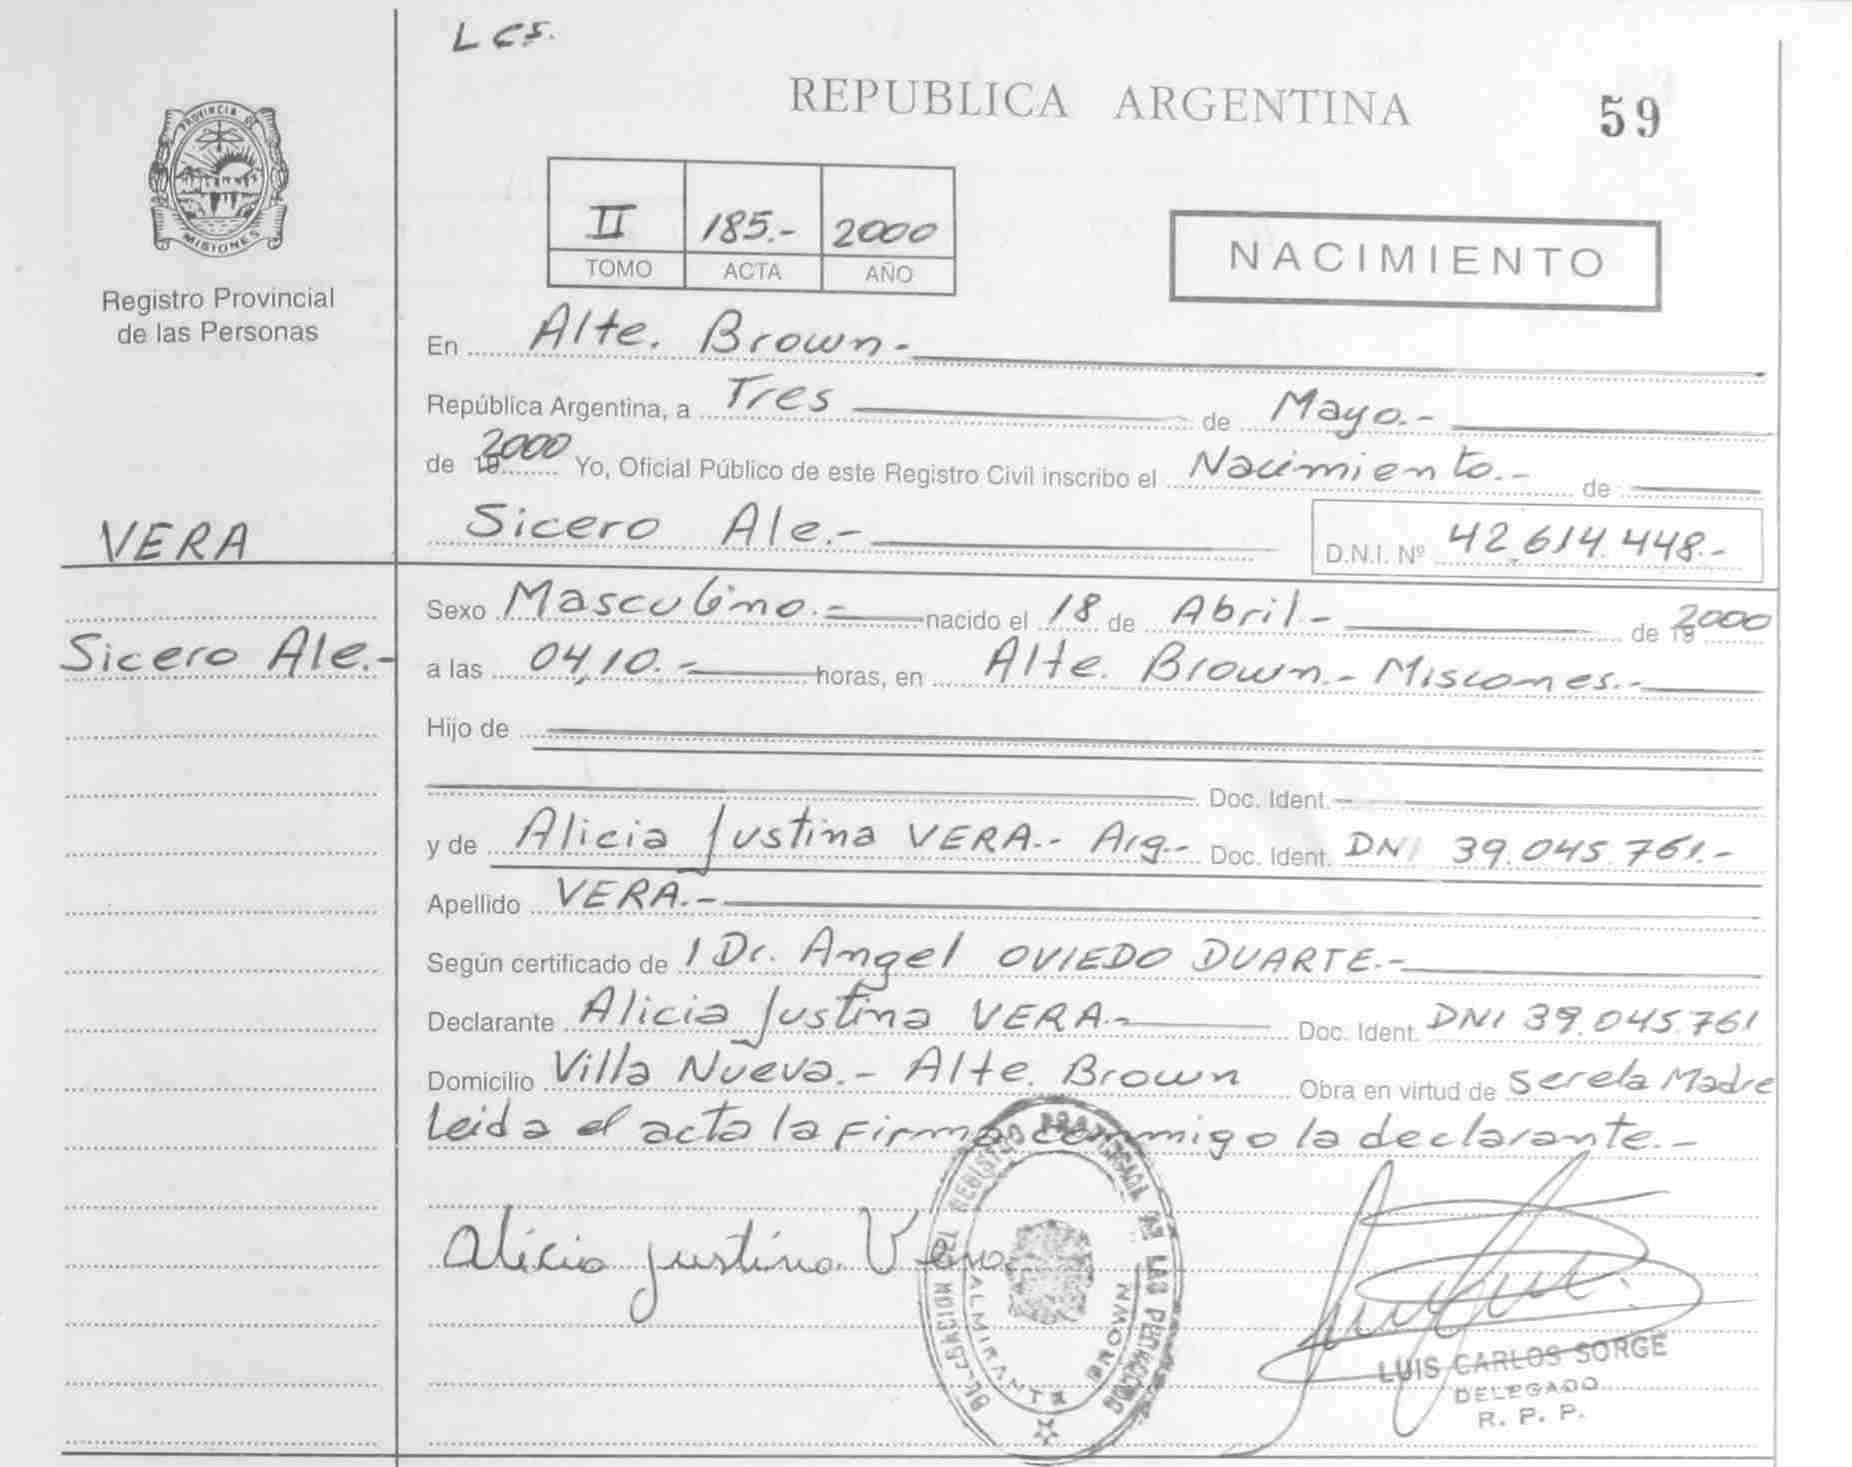 Lcs.
REPUBLICA ARGENTINA
59
PROVINCIA DE
MISIONES
Registro Provincial
de las Personas
II 185.- 2000
TOMO ACTA AÑO
NACIMIENTO
En Alte. Brown.-
República Argentina, a Tres de Mayo.-
de 2000 Yo, Oficial Público de este Registro Civil inscribo el Nacimiento.- de
VERA
Sicero Ale.- D.N.I. Nº 42.614.448.-
Sexo Masculino.- nacido el 18 de Abril.- de 2000
Sicero Ale.-
a las 04,10.- horas, en Alte. Brown.- Misiones.-
Hijo de
Doc. Ident.
y de Alicia Justina VERA.- Arg.- Doc. Ident. DNI 39.045.761.-
Apellido VERA.-
Según certificado de 1 Dr. Angel OVIEDO DUARTE.-
Declarante Alicia Justina VERA.- Doc. Ident. DNI 39.045.761
Domicilio Villa Nueva.- Alte. Brown Obra en virtud de ser ela Madre
Leida el acta la Firma conmigo la declarante.-
Alicia Justina Vera
DELEGACION DEL REGISTRO PROVINCIAL DE LAS PERSONAS
ALMIRANTE BROWN
LUIS CARLOS SORGE
DELEGADO
R. P. P.